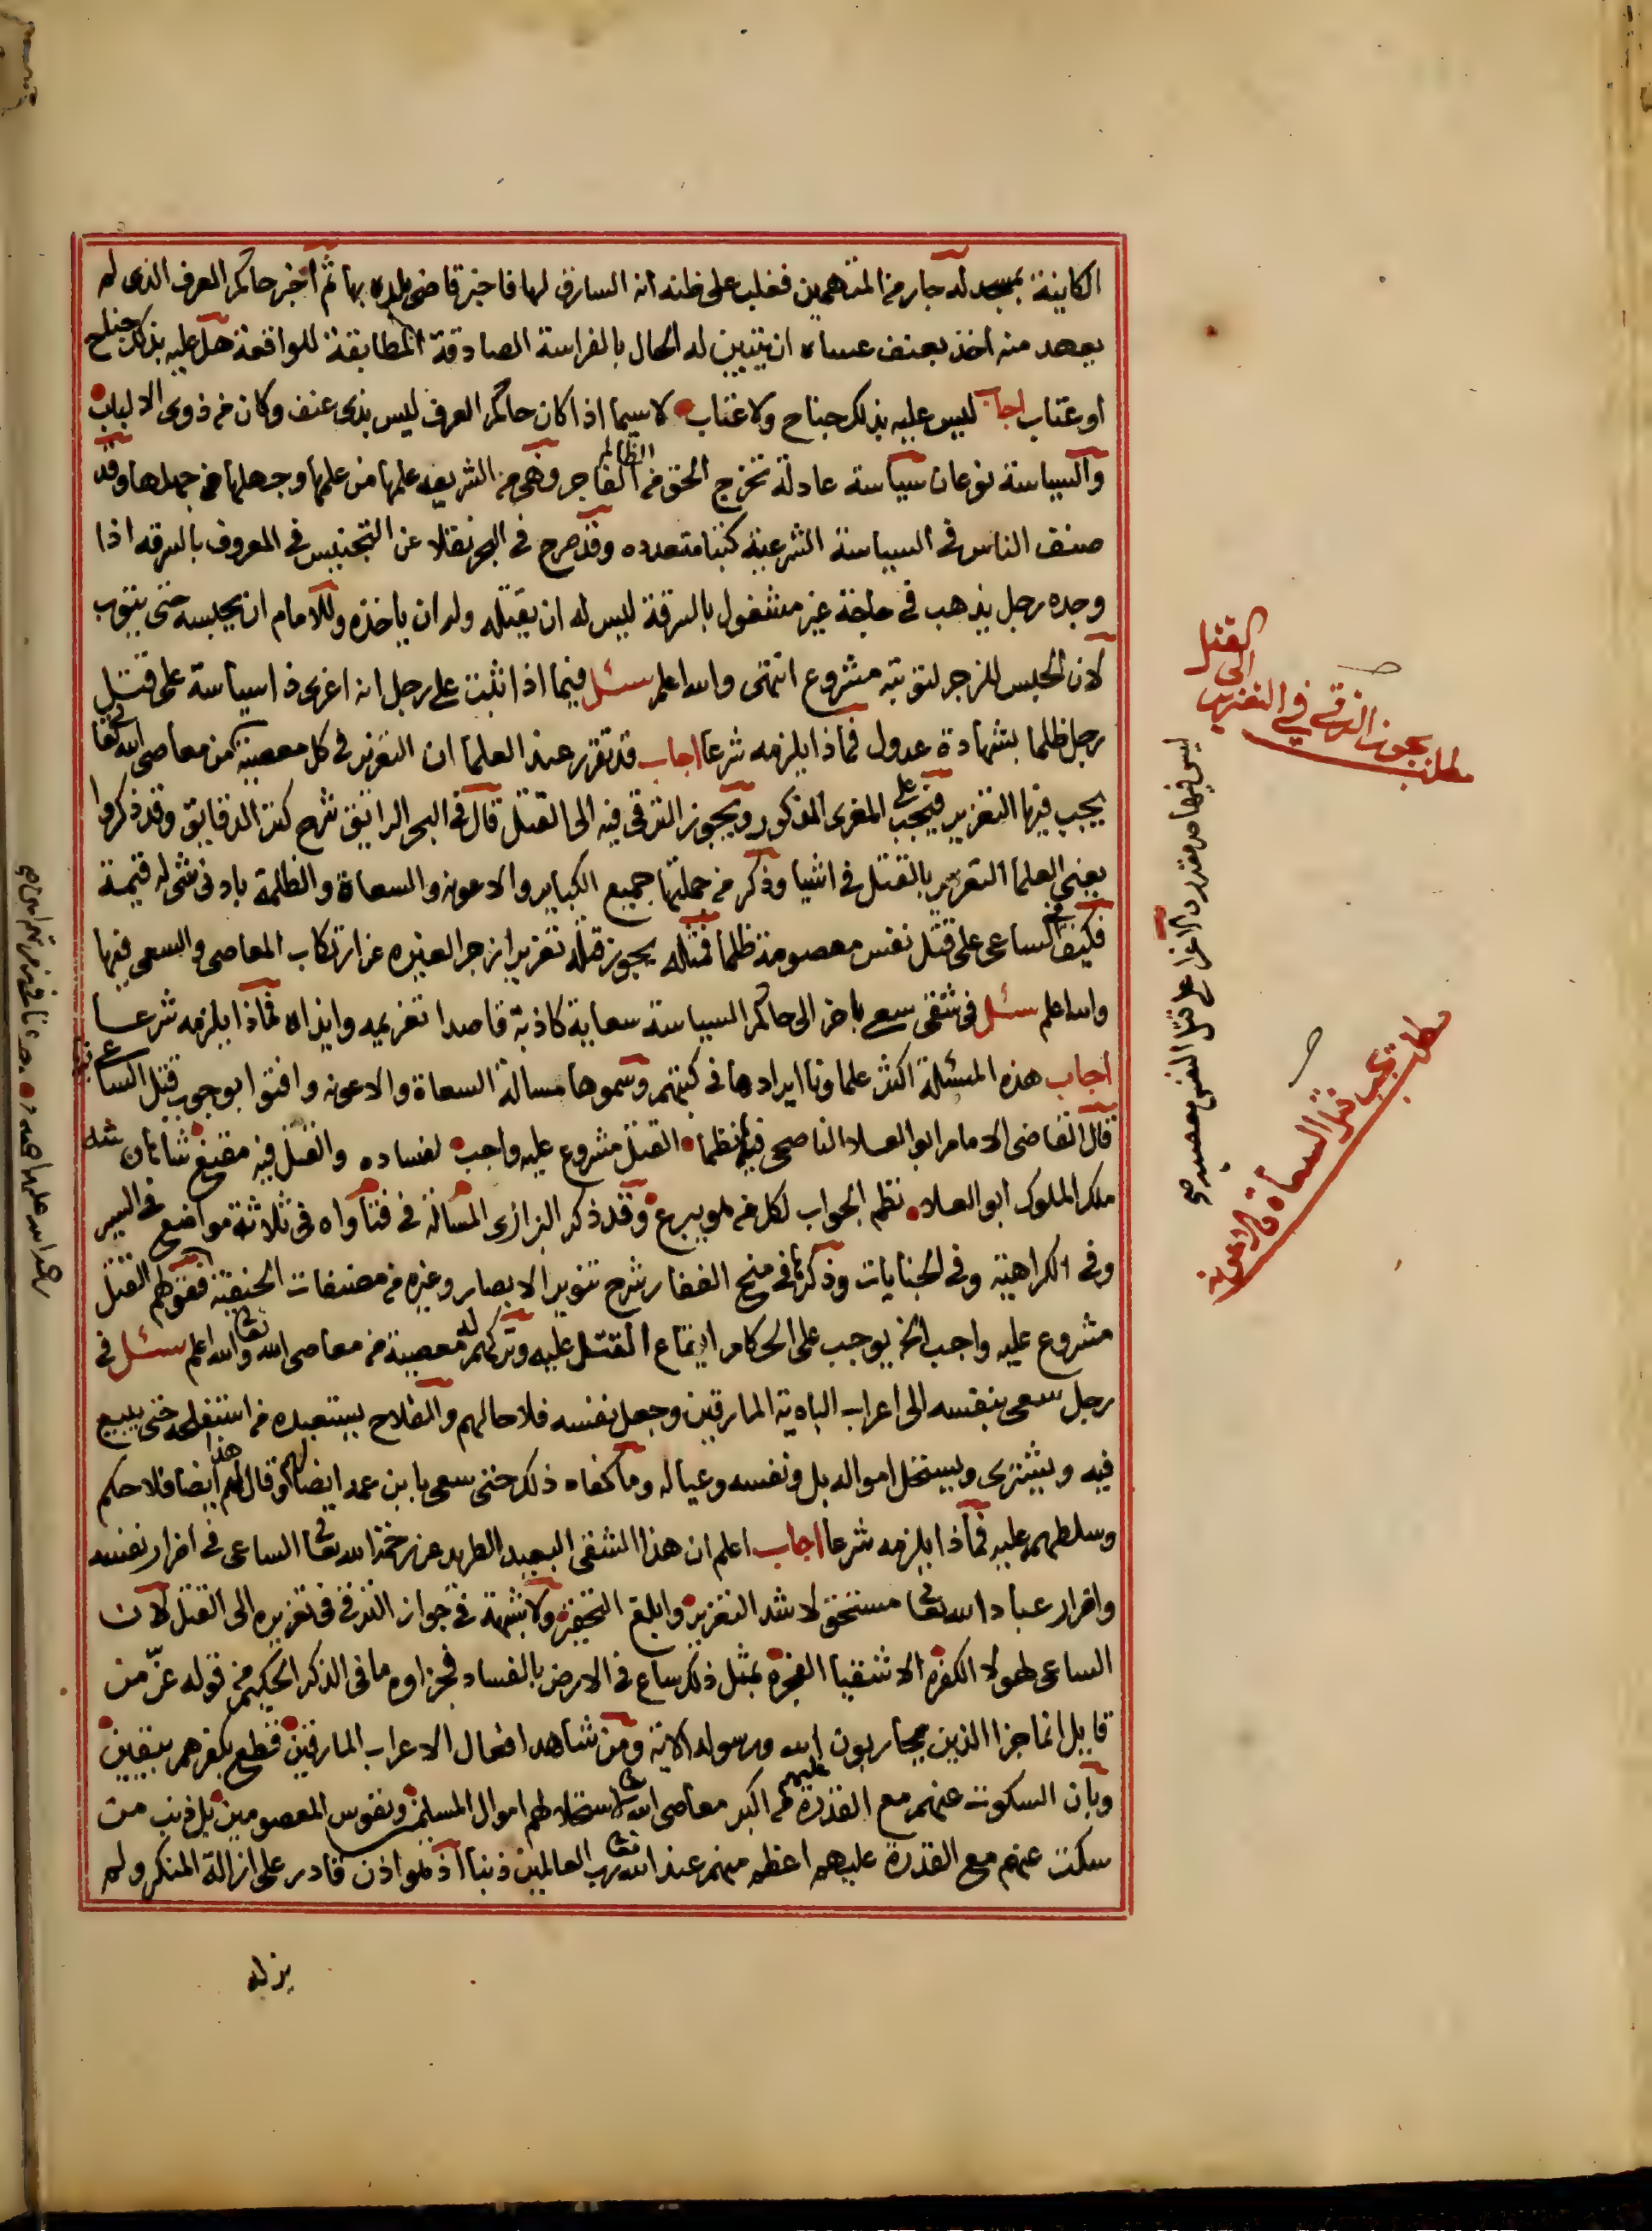 الكاينة بمسجد له جار من المتهمين فغلب على ظنه انه السارق لها فاخبر قاضى بلده بها ثم اخبر حاكم العرف الذى لم
يعهد منه اخذ بعنف عساه ان يتبين له الحال بالفراسة الصادقة المطابقة للواقعة هل عليه بذلك جناح
او عتاب اجاب ليس عليه بذلك جناح ولا عتاب لا سيما اذا كان حاكم العرف ليس بذى عنف وكان من ذوى الالباب
والسياسة نوعان سياسة عادلة تخرج الحق من الظالم الفاجر وهى من الشريعه علمها من علمها وجهلها من جهلها وقد
صنف الناس فى السياسة الشرعية كتبا متعدده وقد صرح فى البحر نقلا عن التجنيس فى المعروف بالسرقه اذا
وجده رجل يذهب فى حاجة غير مشغول بالسرقة ليس له ان يقتله وله ان ياخذه وللامام ان يحبسه حتى يتوب
لان الحبس للزجر لتوبته مشروع انتهى والله اعلم سئل فيما اذا ثبت على رجل انه اغرى ذا سياسة على قتل
رجل ظلما بشهادة عدول فماذا يلزمه شرعا اجاب قد تقرر عند العلما ان التعزير فى كل معصية من معاصى الله تعالى
يجب فيها التعزير فيجب على المغرى المذكور ويجوز الترقى فيه الى القتل قال فى البحر الرائق شرح كنز الدقايق وقد ذكروا
يعنى العلما التعزير بالقتل فى اشيا وذكر من جملتها جميع الكباير والاعونه والسعاة والظلمة بادنى شى له قيمة
فكيف من الساعى على قتل نفس معصومة ظلما فمثله يجوز قتله تعزيرا زجرا لغيره عن ارتكاب المعاصى والسعى فيها
والله اعلم سئل فى شقى سعى باخر الى حاكم السياسة سعاية كاذبة قاصدا تغريمه وايذاه فماذا يلزمه شرعا
اجاب هذه المسئلة اكثر علماونا ايرادها فى كتبهم وسموها مسالة السعاة والاعونه وافتوا بوجوب قتل الساعى
قال القاضى الامام ابو العلا الناصحى فيها نظما القتل مشروع عليه واجب لفساده والقتل فيه مقنع شاءان شه
ملك الملوك ابو العلا نظم الجواب لكل من هو يبرع وقد ذكر البزازى المسالة فى فتاواه فى ثلاثة مواضع فى السير
وفى الكراهية وفى الجنايات وذكرها فى منح الغفار شرح تنوير الابصار وغيره من مصنفات الحنفية فقولهم القتل
مشروع عليه واجب الخ يوجب على الحكام ايقاع القتل عليه وتركهم له معصية من معاصى الله تعالى والله اعلم سئل فى
رجل سعى بنفسه الى اعراب البادية المارقين وجعل نفسه فلاحا لهم والفلاح يستعبده من استفلحه حتى يبيع
فيه ويشترى ويستحل امواله بل ونفسه وعياله وما كفاه ذلك حتى سعى بابن عمه ايضا لهم وقال لهم هذا ايضا فلاحكم
وسلطهم عليه فماذا يلزمه شرعا اجاب اعلم ان هذا الشقى البعيد الطريد عن رحمة الله تعالى الساعى فى اضرار نفسه
واضرار عباد الله تعالى مستحق لاشد التعزير وابلغ التحقير ولا شبهة فى جواز الترقى فى تعزيره الى القتل لان
الساعى لهولا الكفرة الاشقيا الفجرة بمثل ذلك ساع فى الارض بالفساد فجزاوه ما فى الذكر الحكيم من قوله عز من
قايل انما جزا الذين يحاربون الله ورسوله الاية ومن شاهد افعال الاعراب المارقين قطع بكفرهم بيقين
وبان السكوت عنهم مع القدرة عليهم من اكبر معاصى الله تعالى لاستحلالهم اموال المسلمين ونفوس المعصومين بل ذنب من
سكت عنهم مع القدرة عليهم اعظم منهم عند الله تعالى رب العالمين ذنبا اذ لو اذن قادر على ازالة المنكر ولم
يزله
مطلب يجوز الترقى فى التعزير
الى
القتل
مطلب يجب قتل السعاة والاعونه